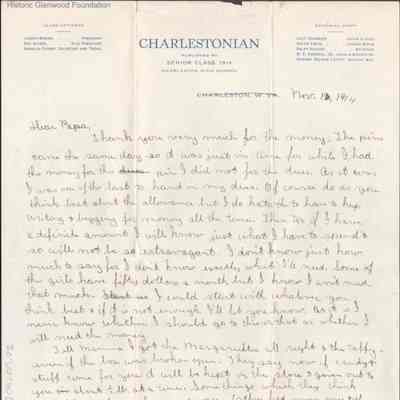 Historic Glenwood Foundation
CLASS OFFICERS
President
Vice President
Secretary and Treas.
EDITORIAL STAFF
CHARLESTONIAN
PUBLISHED BY
SENIOR CLASS 1914
CHARLESTON HIGH SCHOOL
CHARLESTON, W. VA. Nov. 1914
Dear Papa,
Thank you very much for the money. The pin
came the same day so it was just in time for while I had
the money for the dues pin I did not for the dues. As it was
I was one of the last to hand in my dues. Of course do as you
think best about the allowance but I do hate to have to keep
writing & begging for money all the time. Then too if I have
a difinite amount I will know just what I have to spend &
so will not be so extravagant. I don't know just how
much to say for I don't know exactly what I'll need. Some of
the girls have fifty dollars a month but I know I won't need
that much. Start us I could start with whatever you
think best & if it is not enough I'll let you know. As it is I
never know whether I should go to things or not or whether I
will need the money.
Tell Mamma I got the Marguerites all right & the taffy
even if the box was broken open. They say now if candy &
stuff come for you it will be kept in the store & given out to
you about at a time. Some things which they think